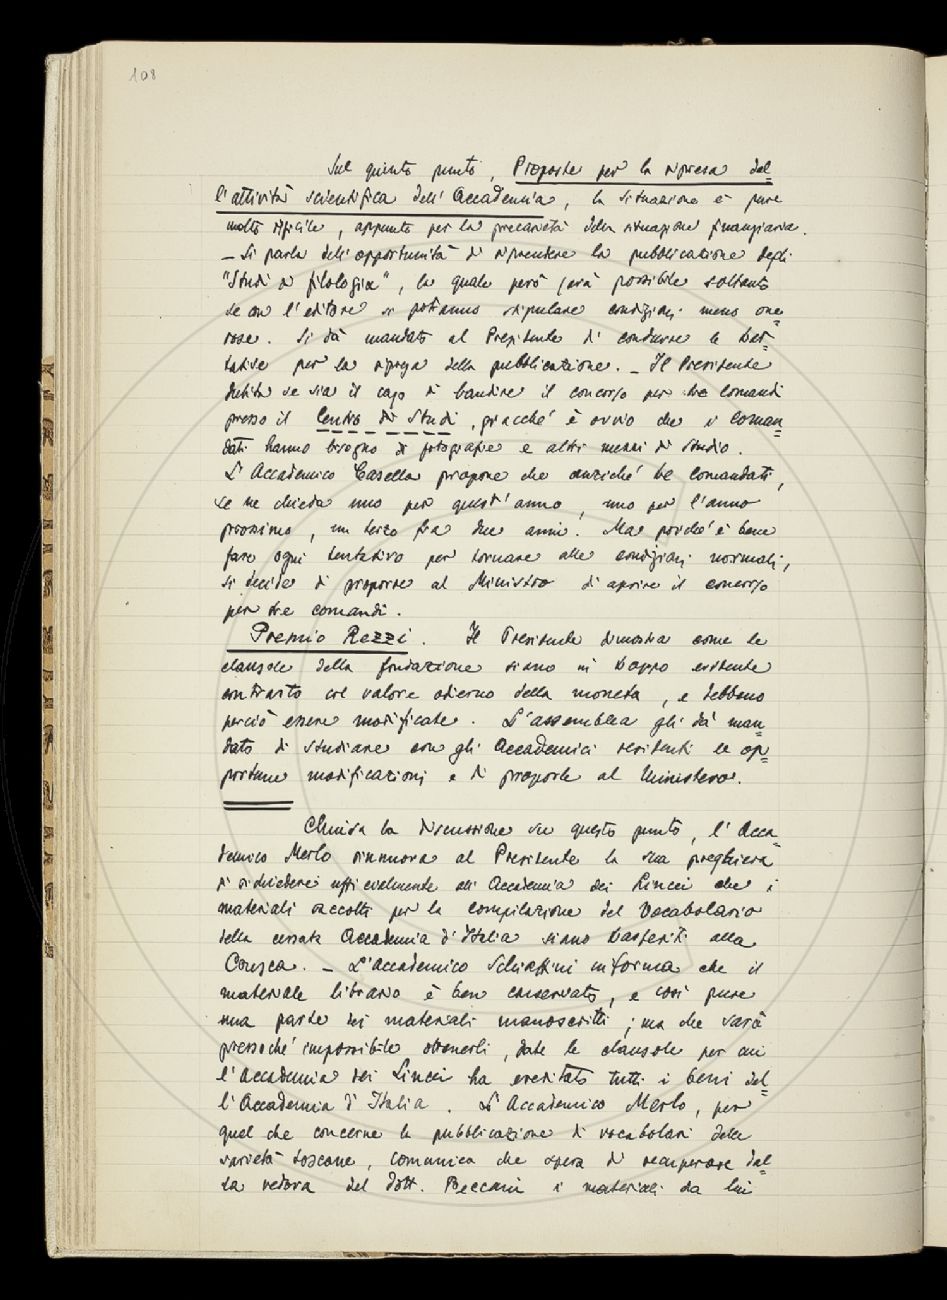 108
Sul quinto punto, Proposte per la ripresa del=
l'attività scientifica dell'Accademia, la situazione è pure
molto difficile, appunto per la precarietà della situazione finanziaria.
– Si parla dell'opportunità di riprendere la pubblicazione degli
"Studi di filologia", la quale però sarà possibile soltanto
se con l'editore si potranno stipulare condizioni meno one=
rose. Si dà mandato al Presidente di condurre le trat=
tative per la ripresa della pubblicazione. – Il Presidente
dubita se sia il caso di bandire il concorso per tre comandi
presso il Centro di Studi, giacché è ovvio che i coman=
dati hanno bisogno di fotografie e altri mezzi di studio.
L'Accademico Casella propone che anziché tre comandati,
se ne chieda uno per quest'anno, uno per l'anno
prossimo, un terzo fra due anni. Ma poiché è bene
fare ogni tentativo per tornare alle condizioni normali,
si decide di proporre al Ministro di aprire il concorso
per tre comandi.
Premio Rezzi. Il Presidente dimostra come le
clausole della fondazione siano in troppo evidente
contrasto col valore odierno della moneta, e debbono
perciò essere modificate. L'assemblea gli dà man=
dato di studiare con gli Accademici residenti le op=
portune modificazioni e di proporle al Ministero.
Chiusa la discussione su questo punto, l'Acca=
demico Merlo rinnova al Presidente la sua preghiera
di richiedere ufficialmente all'Accademia dei Lincei che i
materiali raccolti per la compilazione del Vocabolario
della cessata Accademia d'Italia siano trasferiti alla
Crusca. – L'Accademico Schiaffini informa che il
materiale librario è ben conservato, e così pure
una parte dei materiali manoscritti; ma che sarà
pressoché impossibile ottenerli, date le clausole per cui
l'Accademia dei Lincei ha ereditato tutti i beni del=
l'Accademia d'Italia. L'Accademico Merlo, per
quel che concerne la pubblicazione di vocabolari delle
varietà toscane, comunica che spera di recuperare dal=
la vedova del dott. Beccani i materiali da lui